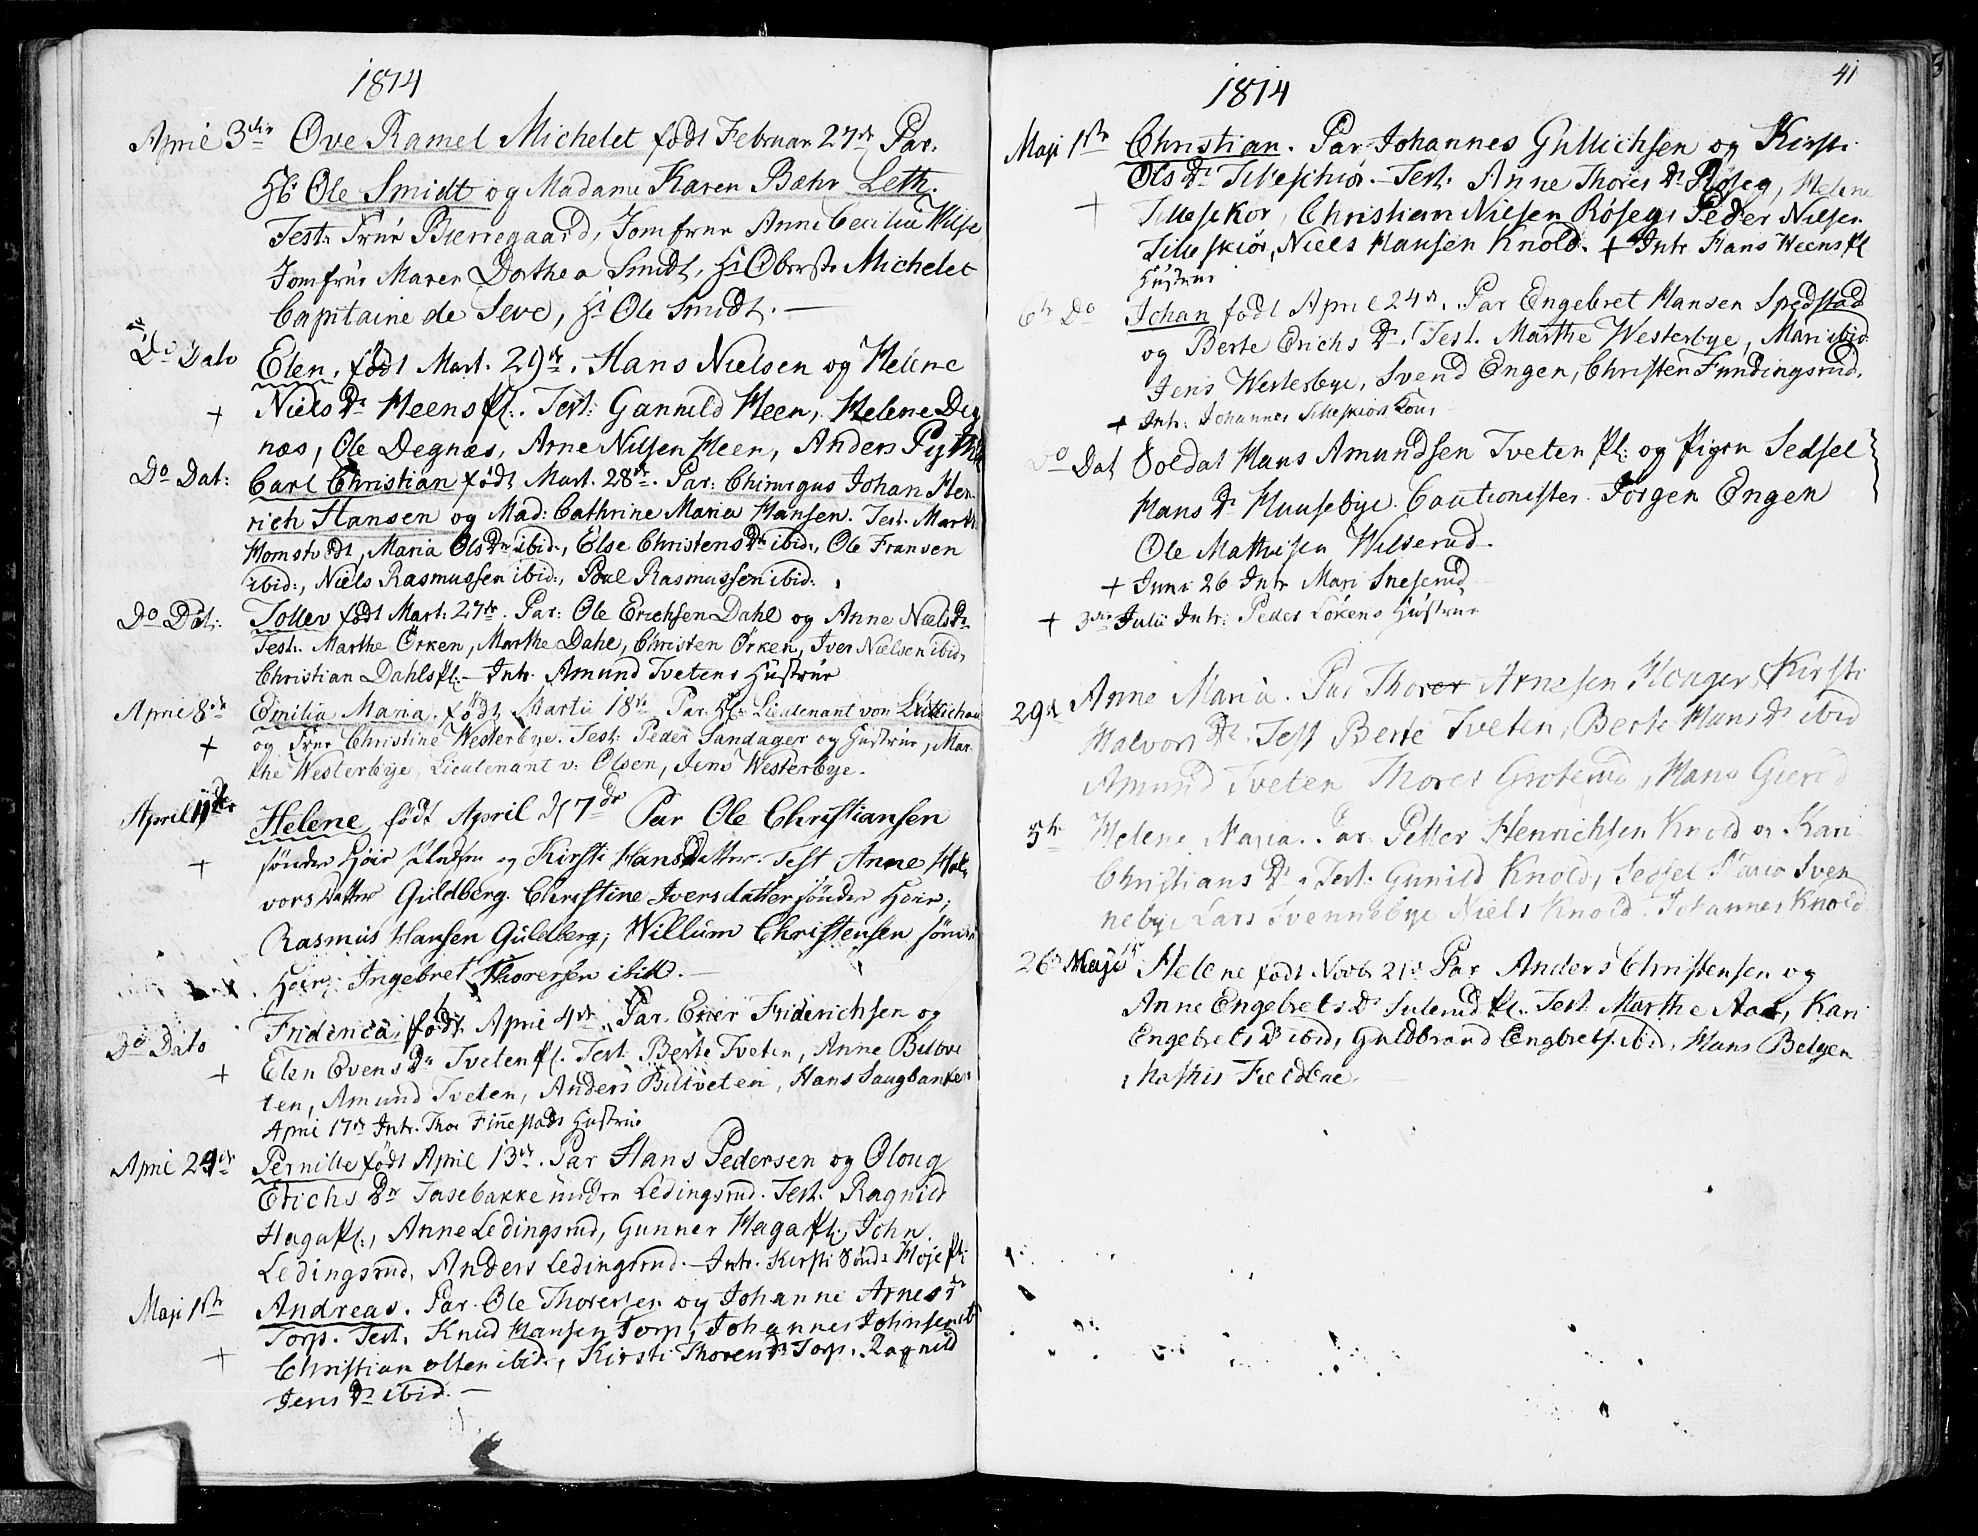 1814
April 3die Ove Ramel Michelet født Februar 27de Par.
Hr Ole Smidt og Madame Karen Bæhr Leth.
Test: Frue Bierregaard, Jomfrue Anne Cecilia Wilse
Jomfrue Maren Dorthea Smidt, Hr Oberste Michelet
Capitaine de Seve, Hr Ole Smidt. —
Do Dato Elen, født Mart. 29de. Hans Nielsen og Helene
+ Niels Dr Heenspl. Test: Gunnild Heen, Helene Deg
næs, Ole Degnæs, Arne Nilsen Heen, Anders
Do Dat: Carl Christian født Mart. 28de. Par: Chirurgus Johan Hen
rich Hansen og Mad: Cathrine Maria Hansen. Test. Marthe
Homstvedt, Maria Ols Dr ibid:, Else Christens Dr ibid:, Ole Fransen
ibid:, Niels Rasmussen ibid:, Poul Rasmussen ibid:
Do Dat: Tollev født Mart. 27de. Par: Ole Erichsen Dahl og Anne Niels Dr
Test. Marthe Örken, Marthe Dahl, Christen Örken, Iver Nielsen ibid,
Christian Dahlspl. — Intr. Amund Tvetens Hustrue
April 8de Emilia Maria. født Martii 18de Par. Hr Lieutenant von Lüttichau
+ og Frue Christine Westerbye. Test: Peder Sandager og Hustrue, Mar
the Westerbye, Lieutenant v: Olsen, Jens Westerbye.
April 11de Helene født April d 7de Par Ole Christiansen
+ sønder Høie og Kirsti Hansdatter. Test Anne Hal
vorsdatter Guldberg. Christine Iversdatter sönder Hoie;
Rasmus Hansen Guldberg; Willum Christensen sönder
Hoie; Ingebret Thorersen ibid. —
Do Dato Friderica, født April 4de. Par. Ener Friderichsen og
+ Elen Evens Dr Tvetenpl. Test. Berte Tveten, Anne Biltve
ten, Amund Tveten, Anders Biltveten, Hans Saugbanken
April 17de Intr. Thor Finnestads Hustrue
April 29de Pernille født April 13de. Par Hans Pedersen og Oloug
Erichs Dr Tasebakke under Ledingsrud. Test. Ragnild
Hagapl:, Anne Ledingsrud, Gunner Hagapl:, John
Ledingsrud, Anders Ledingsrud. — Intr. Kirsti Sönd: Höje pl:
Maji 1ste Andreas. Par. Ole Thorersen og Johanne Arnes Dr
Torp. Test. Knud Hansen Torp, Johannes Johnsen ib
+ Christian olsen ibid., Kirsti Thorens Dr Torp. Ragnild
Jens Dr ibid. —
41
1814
Maji 1ste Christian. Par Johannes Gullichsen og Kirsti
Ols Dr Silleskiör. — Test. Anne Thores Dr Röseg, Helene
+ Silleskör, Christian Nilsen Röseg, Peder Nilsen
Silleskiör, Niels Hansen Knold. + Intr Hans Heenspl
Hustrue
6te Do Johan født April 24de. Par Engebret Hansen Spedstad
og Berte Erichs Dr. Test. Marthe Westerbye, Mari ibid
Jens Westerbye, Svend Engen, Christen Fundingsrud.
+ Intr. Johannes Silleskiörs Kone
Do Dat Soldat Hans Amundsen Tveten pl: og pigen Sedsel
Hans Dr Huusebye. Cautionister Jörgen Engen
Ole Mathisen Wilserud.
+ Juni 26 Intr Mari Sneserud
+ 3die Julii Intr: Peder Lökens Hustrue
29de Anne Maria. Par Thorer Arnesen Hoager, Kirsti
Halvors Dr. Test Berte Tveten, Berte Hans Dr ibid
Amund Tveten Thorer Groterud, Hans Gierød
5te Helene Maria. Par. Petter Henrichsen Knold og Kari
Christians Dr. Test: Gunild Knold, Sedsel Maria Sven
nebye Lars Svennebye Niels Knold. Johannes Knold
26de Maji Helene født Novbr 21de Par Anders Christensen og
Anne Engebrets Dr Sulerud pl. Test Marthe Aas, Kari
Engebrets Dr ibid, Guldbrand Engbrets. ibid, Hans Belgen
Mathis Fieldbae.